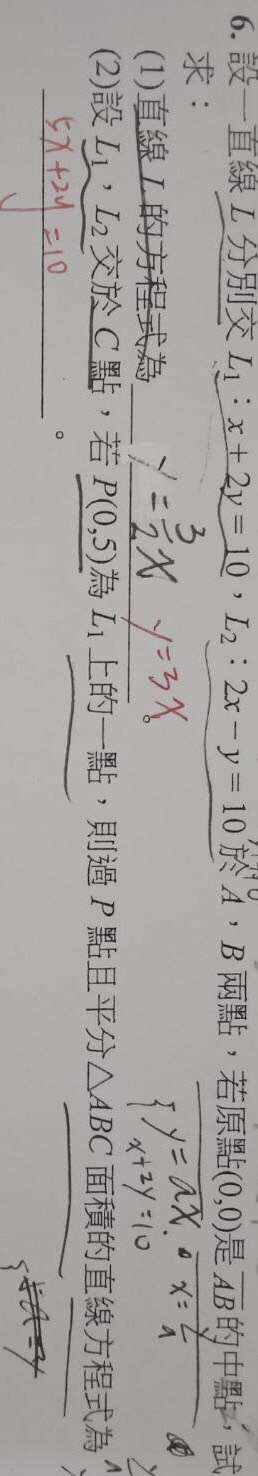 6. 設一直線 L 分別交 L₁：x + 2y = 10，L₂：2x − y = 10 於 A，B 兩點，若原點(0,0)是 AB 的中點，試
求：
(1)直線 L 的方程式為 y = 3/2 x y = 3x。
(2)設 L₁，L₂ 交於 C 點，若 P(0,5)為 L₁ 上的一點，則過 P 點且平分△ABC 面積的直線方程式為
5x+2y=10。
{ y = ax.
x+2y=10